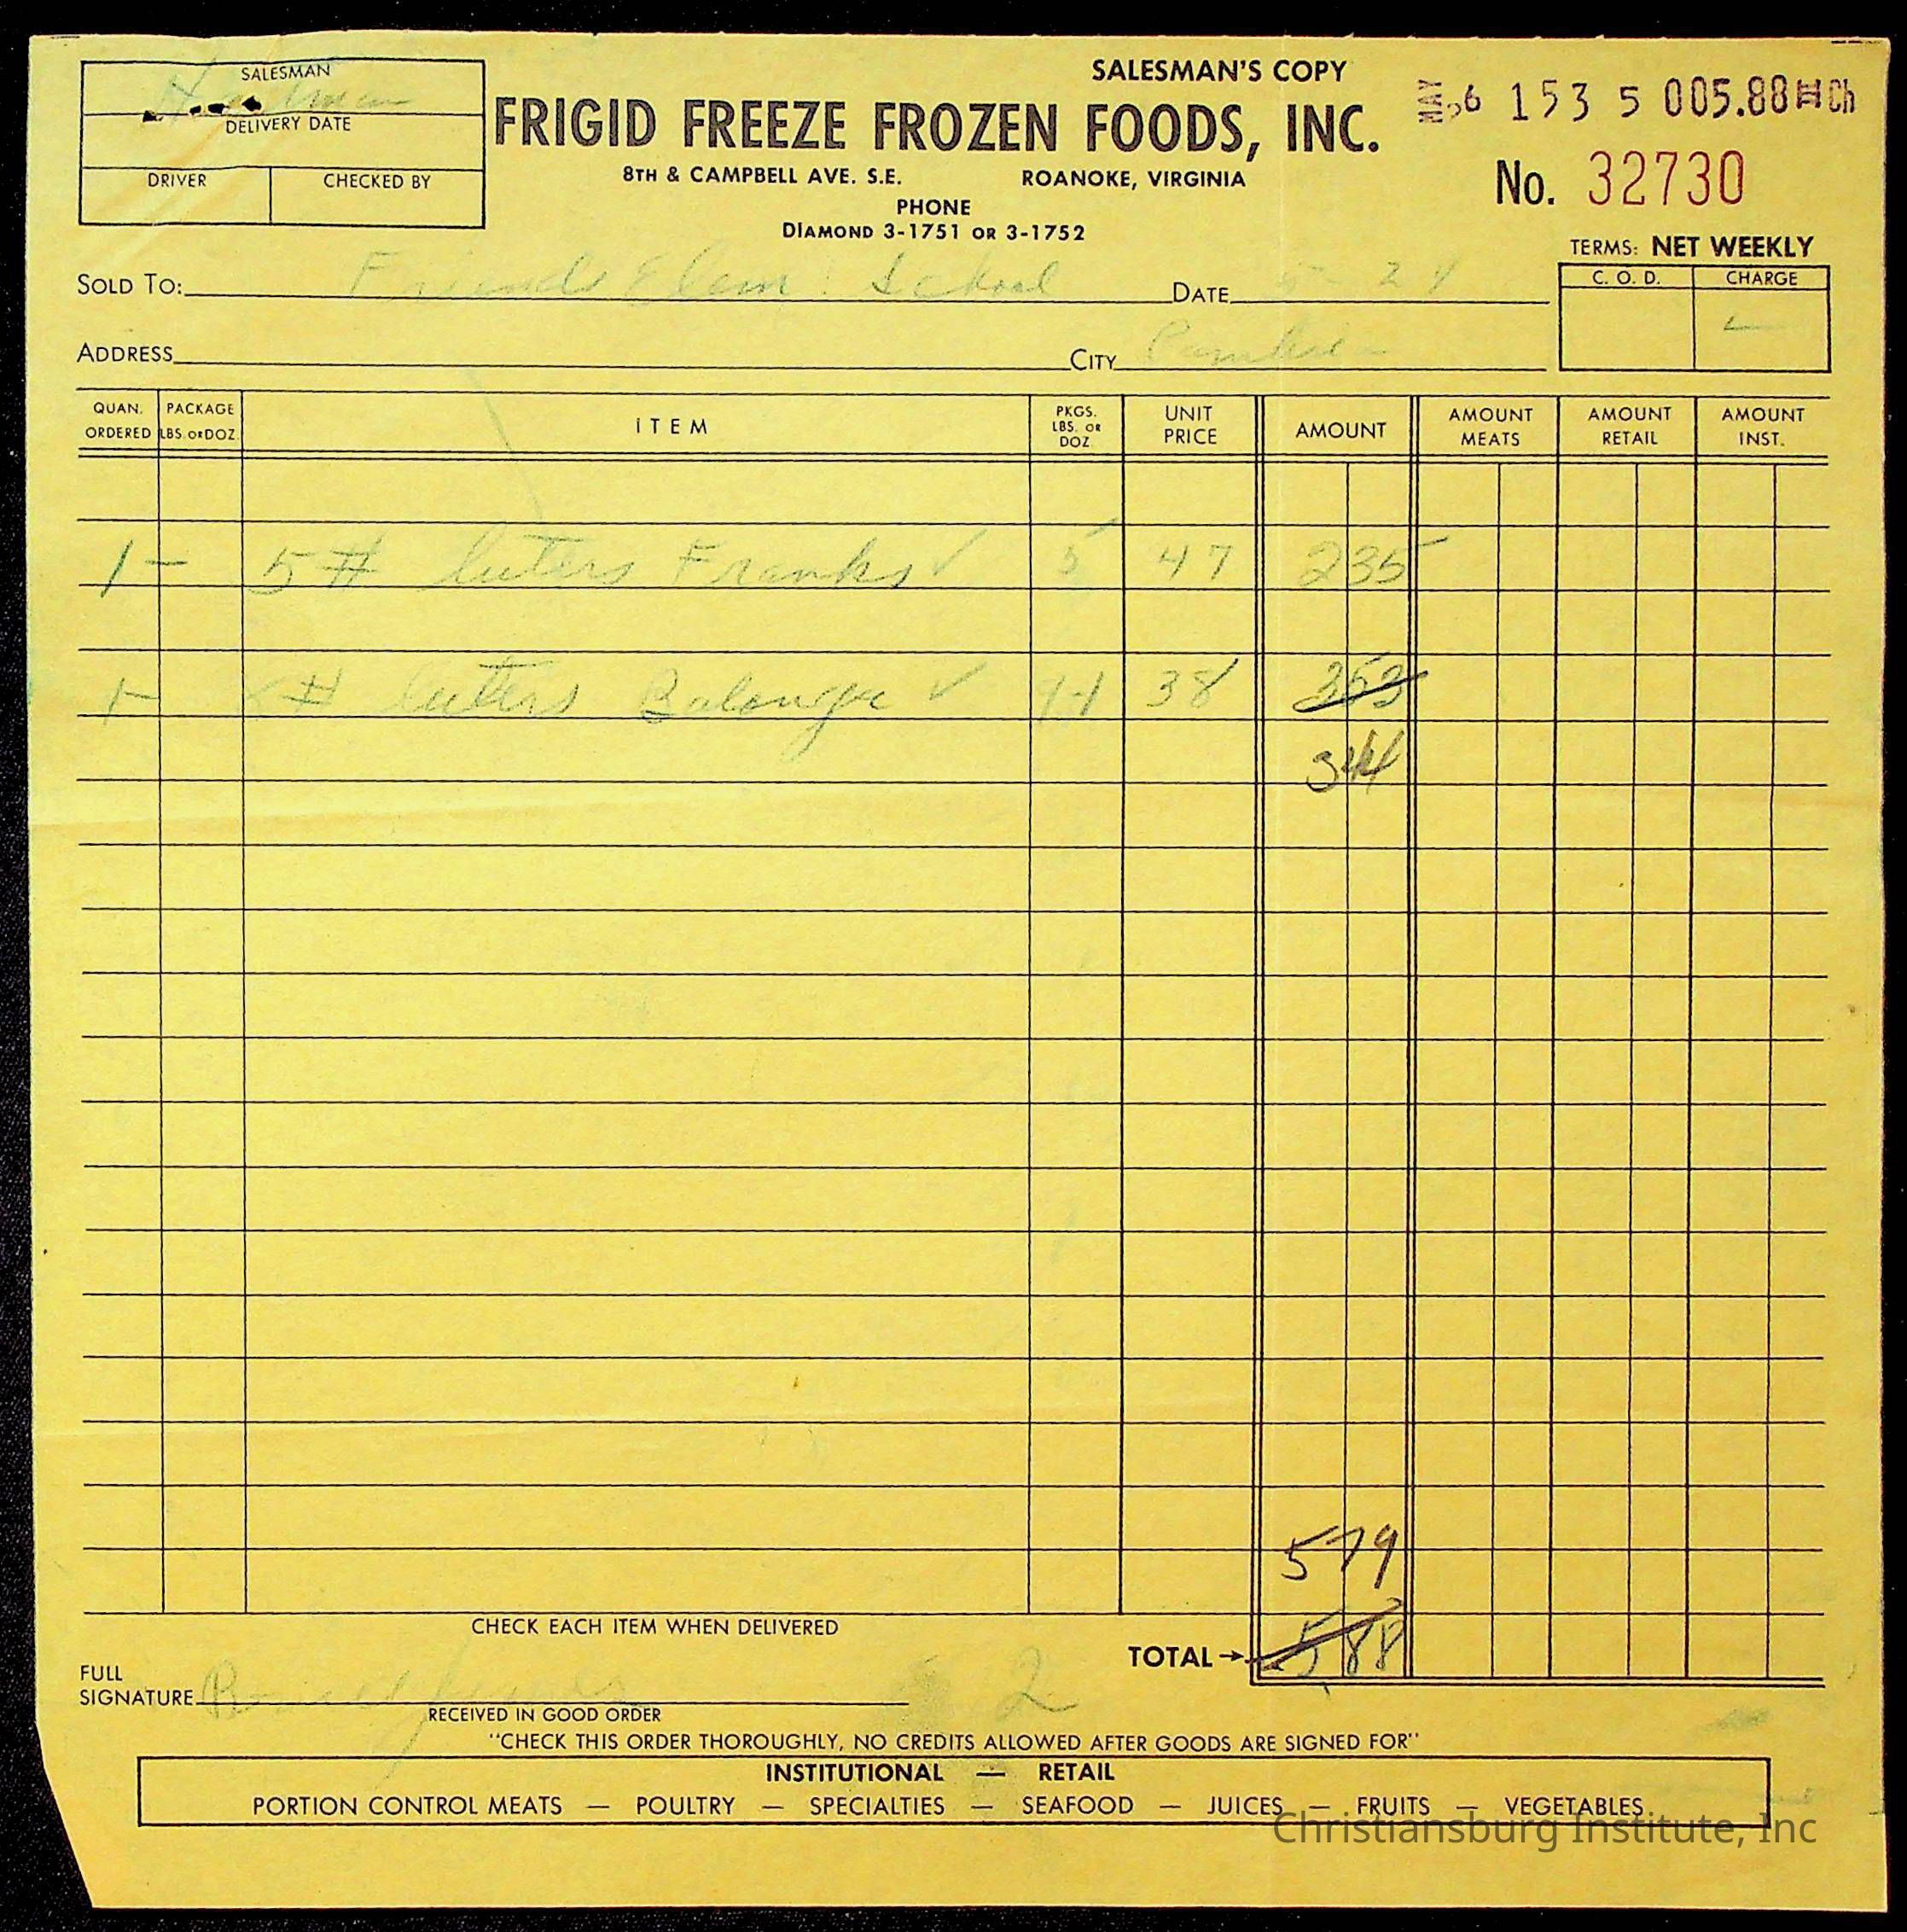 SALESMAN'S COPY
SALESMAN
DELIVERY DATE
DRIVER CHECKED BY
FRIGID FREEZE FROZEN FOODS, INC.
8TH & CAMPBELL AVE. S.E. ROANOKE, VIRGINIA
PHONE
DIAMOND 3-1751 OR 3-1752
MAY 26 153 5 005.88 Ch
No. 32730
TERMS: NET WEEKLY
C. O. D. CHARGE
SOLD TO: Friends Elem. School DATE 5-24
ADDRESS CITY
QUAN. ORDERED PACKAGE LBS. OR DOZ. ITEM PKGS. LBS. OR DOZ. UNIT PRICE AMOUNT AMOUNT MEATS AMOUNT RETAIL AMOUNT INST.
1 - 5 # luters Franks ✓ 5 47 235
1 - # luters Balonga ✓ 9-1 38 353
344
579
CHECK EACH ITEM WHEN DELIVERED
TOTAL → 588
FULL
SIGNATURE 2
RECEIVED IN GOOD ORDER
"CHECK THIS ORDER THOROUGHLY, NO CREDITS ALLOWED AFTER GOODS ARE SIGNED FOR"
INSTITUTIONAL — RETAIL
PORTION CONTROL MEATS — POULTRY — SPECIALTIES — SEAFOOD — JUICES — FRUITS — VEGETABLES
Christiansburg Institute, Inc